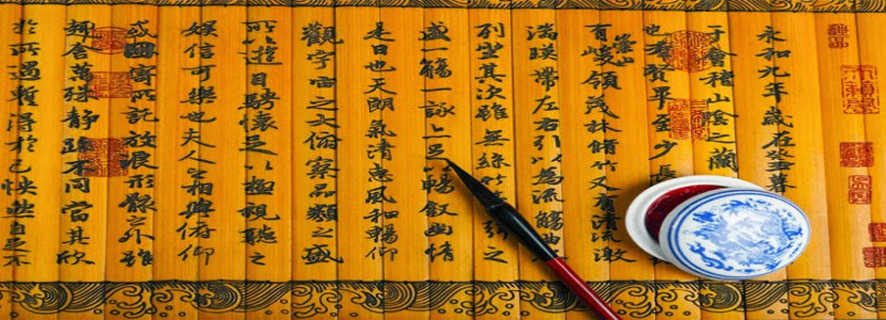 永和九年歲在癸丑暮
于會稽山陰之蘭
也羣賢畢至少長
有崇山峻領茂林脩竹又有清流激
湍暎帶左右引以為流觴曲
列坐其次雖無絲竹弦之
盛一觴一詠上足以暢叙幽情
是日也天朗氣清惠風和暢仰
觀宇宙之大俯察品類之盛
所以遊目騁懷足以極視聽之
娛信可樂也夫人之相與俯仰
或因寄所託放浪形骸之外雖
趣舍萬殊靜躁不同當其欣
於所遇暫得於己怏然自足不